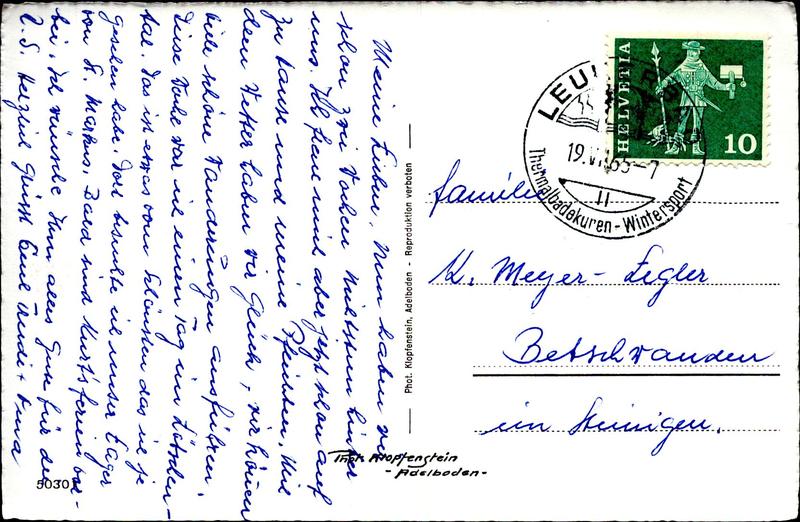 Meine Lieben, Nun haben wir
schon zwei Wochen hinter
uns. Ich freue mich aber jetzt schon auf
zu Hause und meine Pflichten. Mit
dem Wetter haben wir Glück, wir können
viele schöne Wanderungen ausführen.
Diese Woche war ich einen Tag im Lötschen-
tal. Das ist etwas vom Schönsten das ich je
gesehen habe. Dort besuchte ich unser Lager
von St. Markus. Bald sind Kurt's ferien vor-
bei. Ich wünsche Ihm alles Gute für die
R.S. Herzlich Grüsst Eure
50301
Phot. Klopfenstein, Adelboden - Reproduktion verboten
Phot. Klopfenstein
- Adelboden -
HELVETIA
10
19.VI.65-7
Thermalbadekuren - Wintersport
familie
K. Meyer-Zegler
Betschwanden